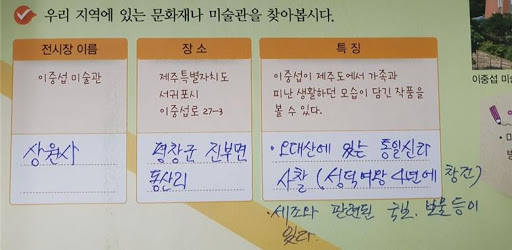 우리 지역에 있는 문화재나 미술관을 찾아봅시다.
전시장 이름
장 소
특 징
이중섭 미술관
제주특별자치도
서귀포시
이중섭로 27-3
이중섭이 제주도에서 가족과
피난 생활하던 모습이 담긴 작품을
볼 수 있다.
이중섭 미술
상원사
평창군 진부면
동산리
· 오대산에 있는 통일신라
사찰 (성덕여왕 4년에 창건)
· 세조와 관련된 국보, 보물 등이
있다.